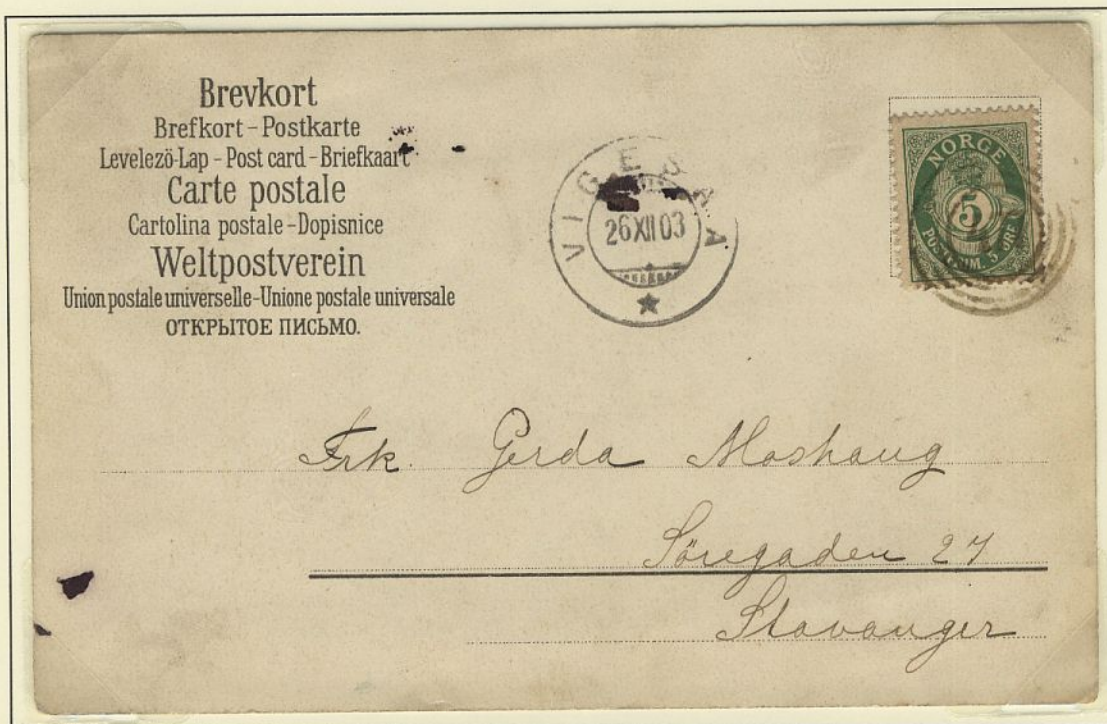 Brevkort
Brefkort - Postkarte
Levelező-Lap - Post card - Briefkaart
Carte postale
Cartolina postale - Dopisnice
Weltpostverein
Union postale universelle - Unione postale universale
ОТКРЫТОЕ ПИСЬМО.
VIGESAA
26 XII 03
NORGE
5
POSTFRIM. 5 ØRE
Frk. Gerda Moshaug
Söregaden 27
Stavanger